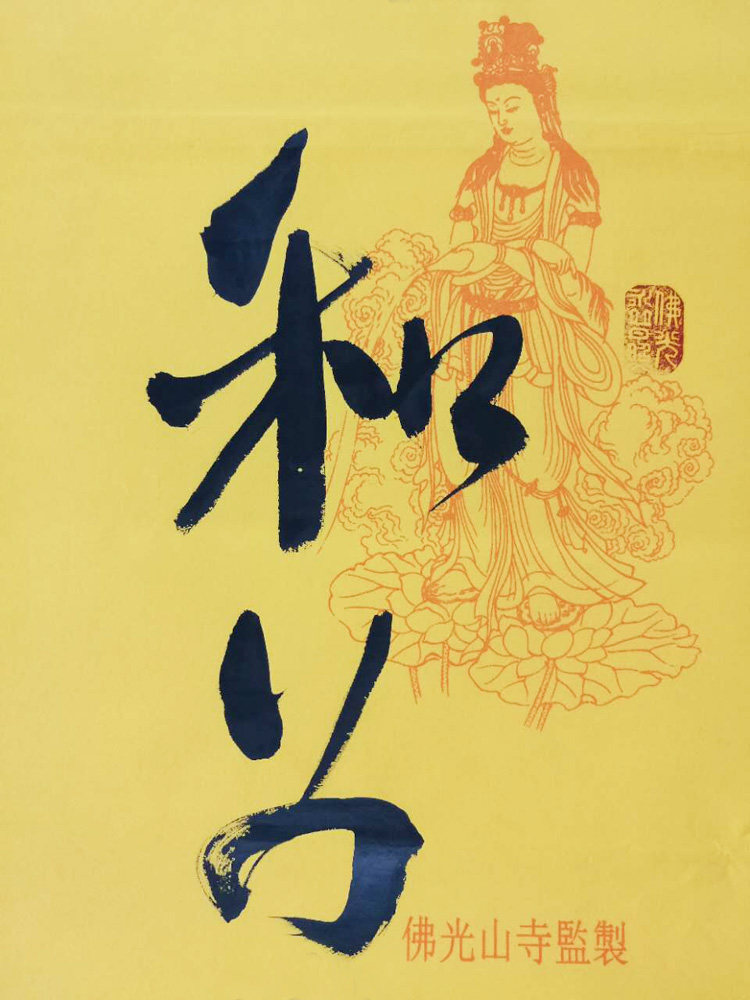 和尚
佛光
佛光山寺監製